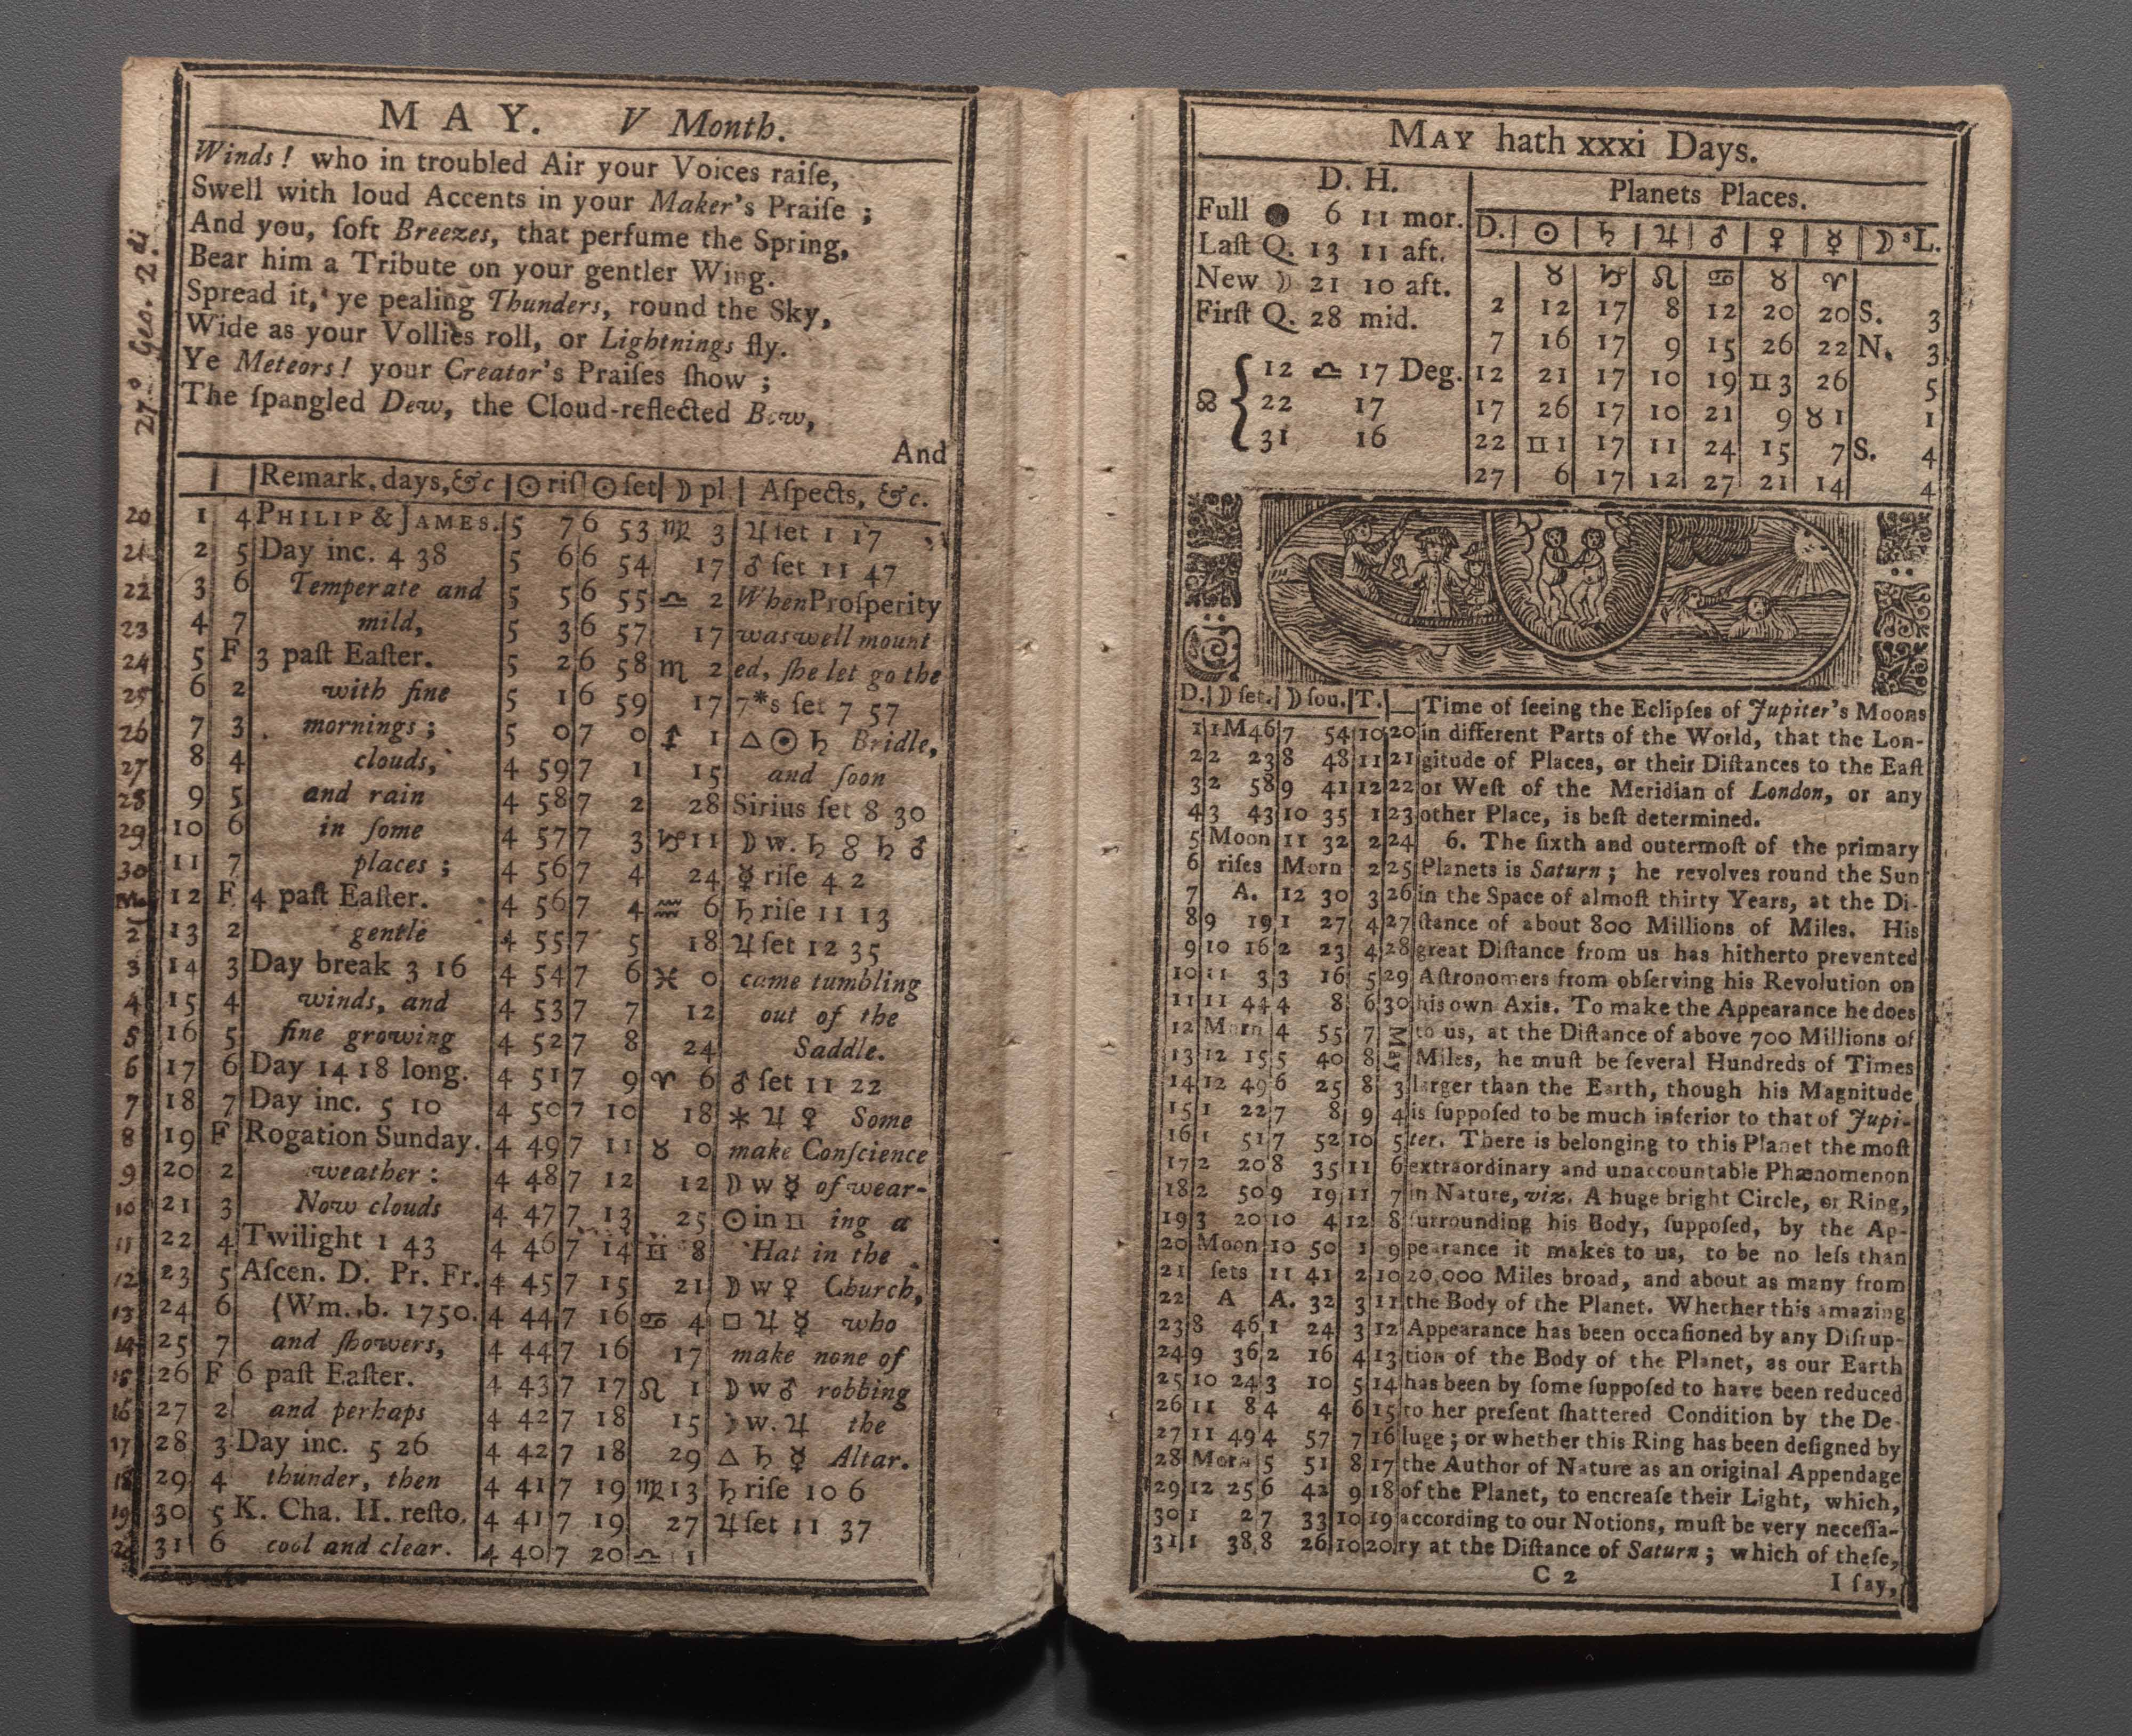 27.º Geo. 2.di
MAY. V Month.
Winds! who in troubled Air your Voices raiſe,
Swell with loud Accents in your Maker's Praiſe ;
And you, ſoft Breezes, that perfume the Spring,
Bear him a Tribute on your gentler Wing.
Spread it, ye pealing Thunders, round the Sky,
Wide as your Vollies roll, or Lightnings fly.
Ye Meteors! your Creator's Praiſes ſhow ;
The ſpangled Dew, the Cloud-reflected Bow,
And
Remark. days, &c ☉ riſ ☉ ſet ☽ pl. Aſpects, &c.
20 1 4 PHILIP & JAMES. 5 7 6 53 ♍ 3 ♃ ſet 1 17
21 2 5 Day inc. 4 38 5 6 6 54 17 ♂ ſet 11 47
22 3 6 Temperate and 5 5 6 55 ♎ 2 When Proſperity
23 4 7 mild, 5 3 6 57 17 was well mount
24 5 F 3 paſt Eaſter. 5 2 6 58 ♏ 2 ed, ſhe let go the
25 6 2 with fine 5 1 6 59 17 7*s ſet 7 57
26 7 3 mornings ; 5 0 7 0 ♐ 1 △ ☉ ♄ Bridle,
27 8 4 clouds, 4 59 7 1 15 and ſoon
28 9 5 and rain 4 58 7 2 28 Sirius ſet 8 30
29 10 6 in ſome 4 57 7 3 ♑ 11 ☽ w. ♄ ☍ ♄ ♂
30 11 7 places ; 4 56 7 4 24 ☿ riſe 4 2
12 F 4 paſt Eaſter. 4 56 7 4 ♒ 6 ♄ riſe 11 13
2 13 2 gentle 4 55 7 5 18 ♃ ſet 12 35
3 14 3 Day break 3 16 4 54 7 6 ♓ 0 came tumbling
4 15 4 winds, and 4 53 7 7 12 out of the
5 16 5 fine growing 4 52 7 8 24 Saddle.
6 17 6 Day 14 18 long. 4 51 7 9 ♈ 6 ♂ ſet 11 22
7 18 7 Day inc. 5 10 4 50 7 10 18 ⚹ ♃ ♀ Some
8 19 F Rogation Sunday. 4 49 7 11 ♉ 0 make Conſcience
9 20 2 weather : 4 48 7 12 12 ☽ w ☿ of wear-
10 21 3 Now clouds 4 47 7 13 25 ☉ in ♊ ing a
11 22 4 Twilight 1 43 4 46 7 14 ♊ 8 Hat in the
12 23 5 Aſcen. D. Pr. Fr. 4 45 7 15 21 ☽ w ♀ Church,
13 24 6 (Wm. b. 1750. 4 44 7 16 ♋ 4 □ ♃ ☿ who
14 25 7 and ſhowers, 4 44 7 16 17 make none of
15 26 F 6 paſt Eaſter. 4 43 7 17 ♌ 1 ☽ w ♂ robbing
16 27 2 and perhaps 4 42 7 18 15 ☽ w. ♃ the
17 28 3 Day inc. 5 26 4 42 7 18 29 △ ♄ ☿ Altar.
18 29 4 thunder, then 4 41 7 19 ♍ 13 ♄ riſe 10 6
19 30 5 K. Cha. II. reſto. 4 41 7 19 27 ♃ ſet 11 37
31 6 cool and clear. 4 40 7 20 ♎ 1
MAY hath xxxi Days.
D. H.
Full ● 6 11 mor.
Laſt Q. 13 11 aft.
New ☽ 21 10 aft.
Firſt Q. 28 mid.
☊ { 12 ♎ 17 Deg.
22 17
31 16
Planets Places.
D. ☉ ♄ ♃ ♂ ♀ ☿ ☽ sL.
♉ ♑ ♌ ♋ ♉ ♈
2 12 17 8 12 20 20 S. 3
7 16 17 9 15 26 22 N. 3
12 21 17 10 19 ♊ 3 26 5
17 26 17 10 21 9 ♉ 1 1
22 ♊ 1 17 11 24 15 7 S. 4
27 6 17 12 27 21 14 4
D. ☽ ſet. ☽ ſou. T. — Time of ſeeing the Eclipſes of Jupiter's Moons
1 1M46 7 54 10 20 in different Parts of the World, that the Lon-
2 2 23 8 48 11 21 gitude of Places, or their Diſtances to the Eaſt
3 2 58 9 41 12 22 or Weſt of the Meridian of London, or any
4 3 43 10 35 1 23 other Place, is beſt determined.
5 Moon 11 32 2 24 6. The ſixth and outermoſt of the primary
6 riſes Morn 2 25 Planets is Saturn ; he revolves round the Sun
7 A. 12 30 3 26 in the Space of almoſt thirty Years, at the Di-
8 9 19 1 27 4 27 ſtance of about 800 Millions of Miles. His
9 10 16 2 23 4 28 great Diſtance from us has hitherto prevented
10 11 3 3 16 5 29 Aſtronomers from obſerving his Revolution on
11 11 44 4 8 6 30 his own Axis. To make the Appearance he does
12 Morn 4 55 7 May to us, at the Diſtance of above 700 Millions of
13 12 15 5 40 8 Miles, he muſt be ſeveral Hundreds of Times
14 12 49 6 25 8 3 larger than the Earth, though his Magnitude
15 1 22 7 8 9 4 is ſuppoſed to be much inferior to that of Jupi-
16 1 51 7 52 10 5 ter. There is belonging to this Planet the moſt
17 2 20 8 35 11 6 extraordinary and unaccountable Phænomenon
18 2 50 9 19 11 7 in Nature, viz. A huge bright Circle, or Ring,
19 3 20 10 4 12 8 ſurrounding his Body, ſuppoſed, by the Ap-
20 Moon 10 50 1 9 pearance it makes to us, to be no leſs than
21 ſets 11 41 2 10 20,000 Miles broad, and about as many from
22 A A. 32 3 11 the Body of the Planet. Whether this amazing
23 8 46 1 24 3 12 Appearance has been occaſioned by any Diſrup-
24 9 36 2 16 4 13 tion of the Body of the Planet, as our Earth
25 10 24 3 10 5 14 has been by ſome ſuppoſed to have been reduced
26 11 8 4 4 6 15 to her preſent ſhattered Condition by the De-
27 11 49 4 57 7 16 luge ; or whether this Ring has been deſigned by
28 Morn 5 51 8 17 the Author of Nature as an original Appendage
29 12 25 6 42 9 18 of the Planet, to encreaſe their Light, which,
30 1 2 7 33 10 19 according to our Notions, muſt be very neceſſa-
31 1 38 8 26 10 20 ry at the Diſtance of Saturn ; which of theſe,
C 2 I ſay,